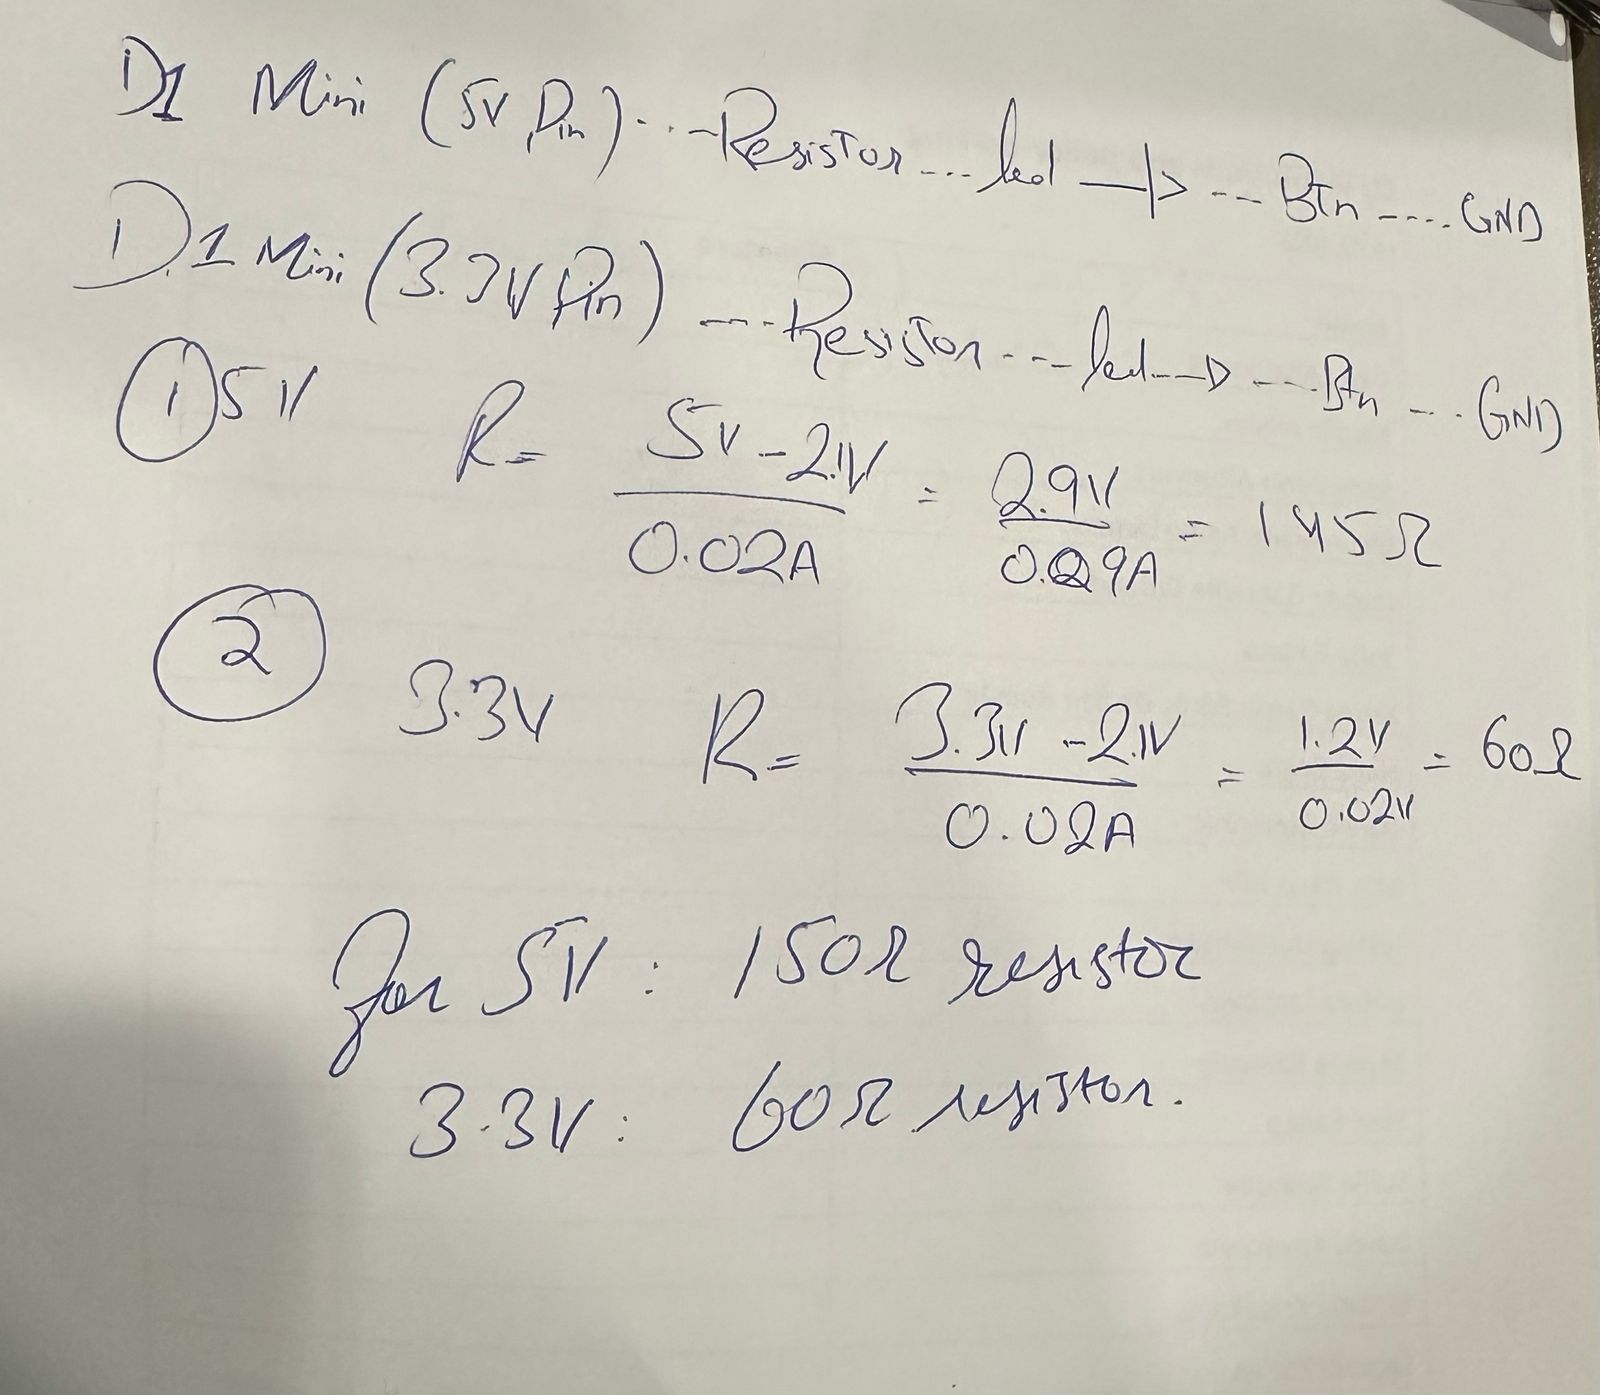 D1 Mini (5V Pin)...Resistor...led —|>...Btn....GND
D1 Mini (3.3V Pin)....Resistor....led--->....Btn...GND
① 5V R= 5V-2.1V / 0.02A = 2.9V / 0.029A = 145Ω
② 3.3V R= 3.3V-2.1V / 0.02A = 1.2V / 0.02V = 60Ω
for 5V: 150Ω resistor
3.3V: 60Ω resistor.